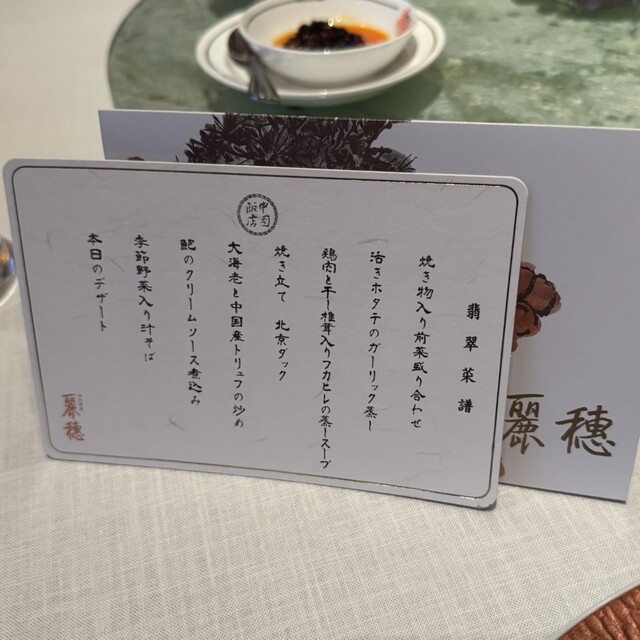 翡翠菜譜
焼き物入り前菜盛り合わせ
活きホタテのガーリック蒸し
鶏肉と干し椎茸入りフカヒレの蒸しスープ
焼き立て 北京ダック
大海老と中国産トリュフの炒め
鮑のクリームソース煮込み
季節野菜入り汁そば
本日のデザート
中国飯店
麗穂
麗穂